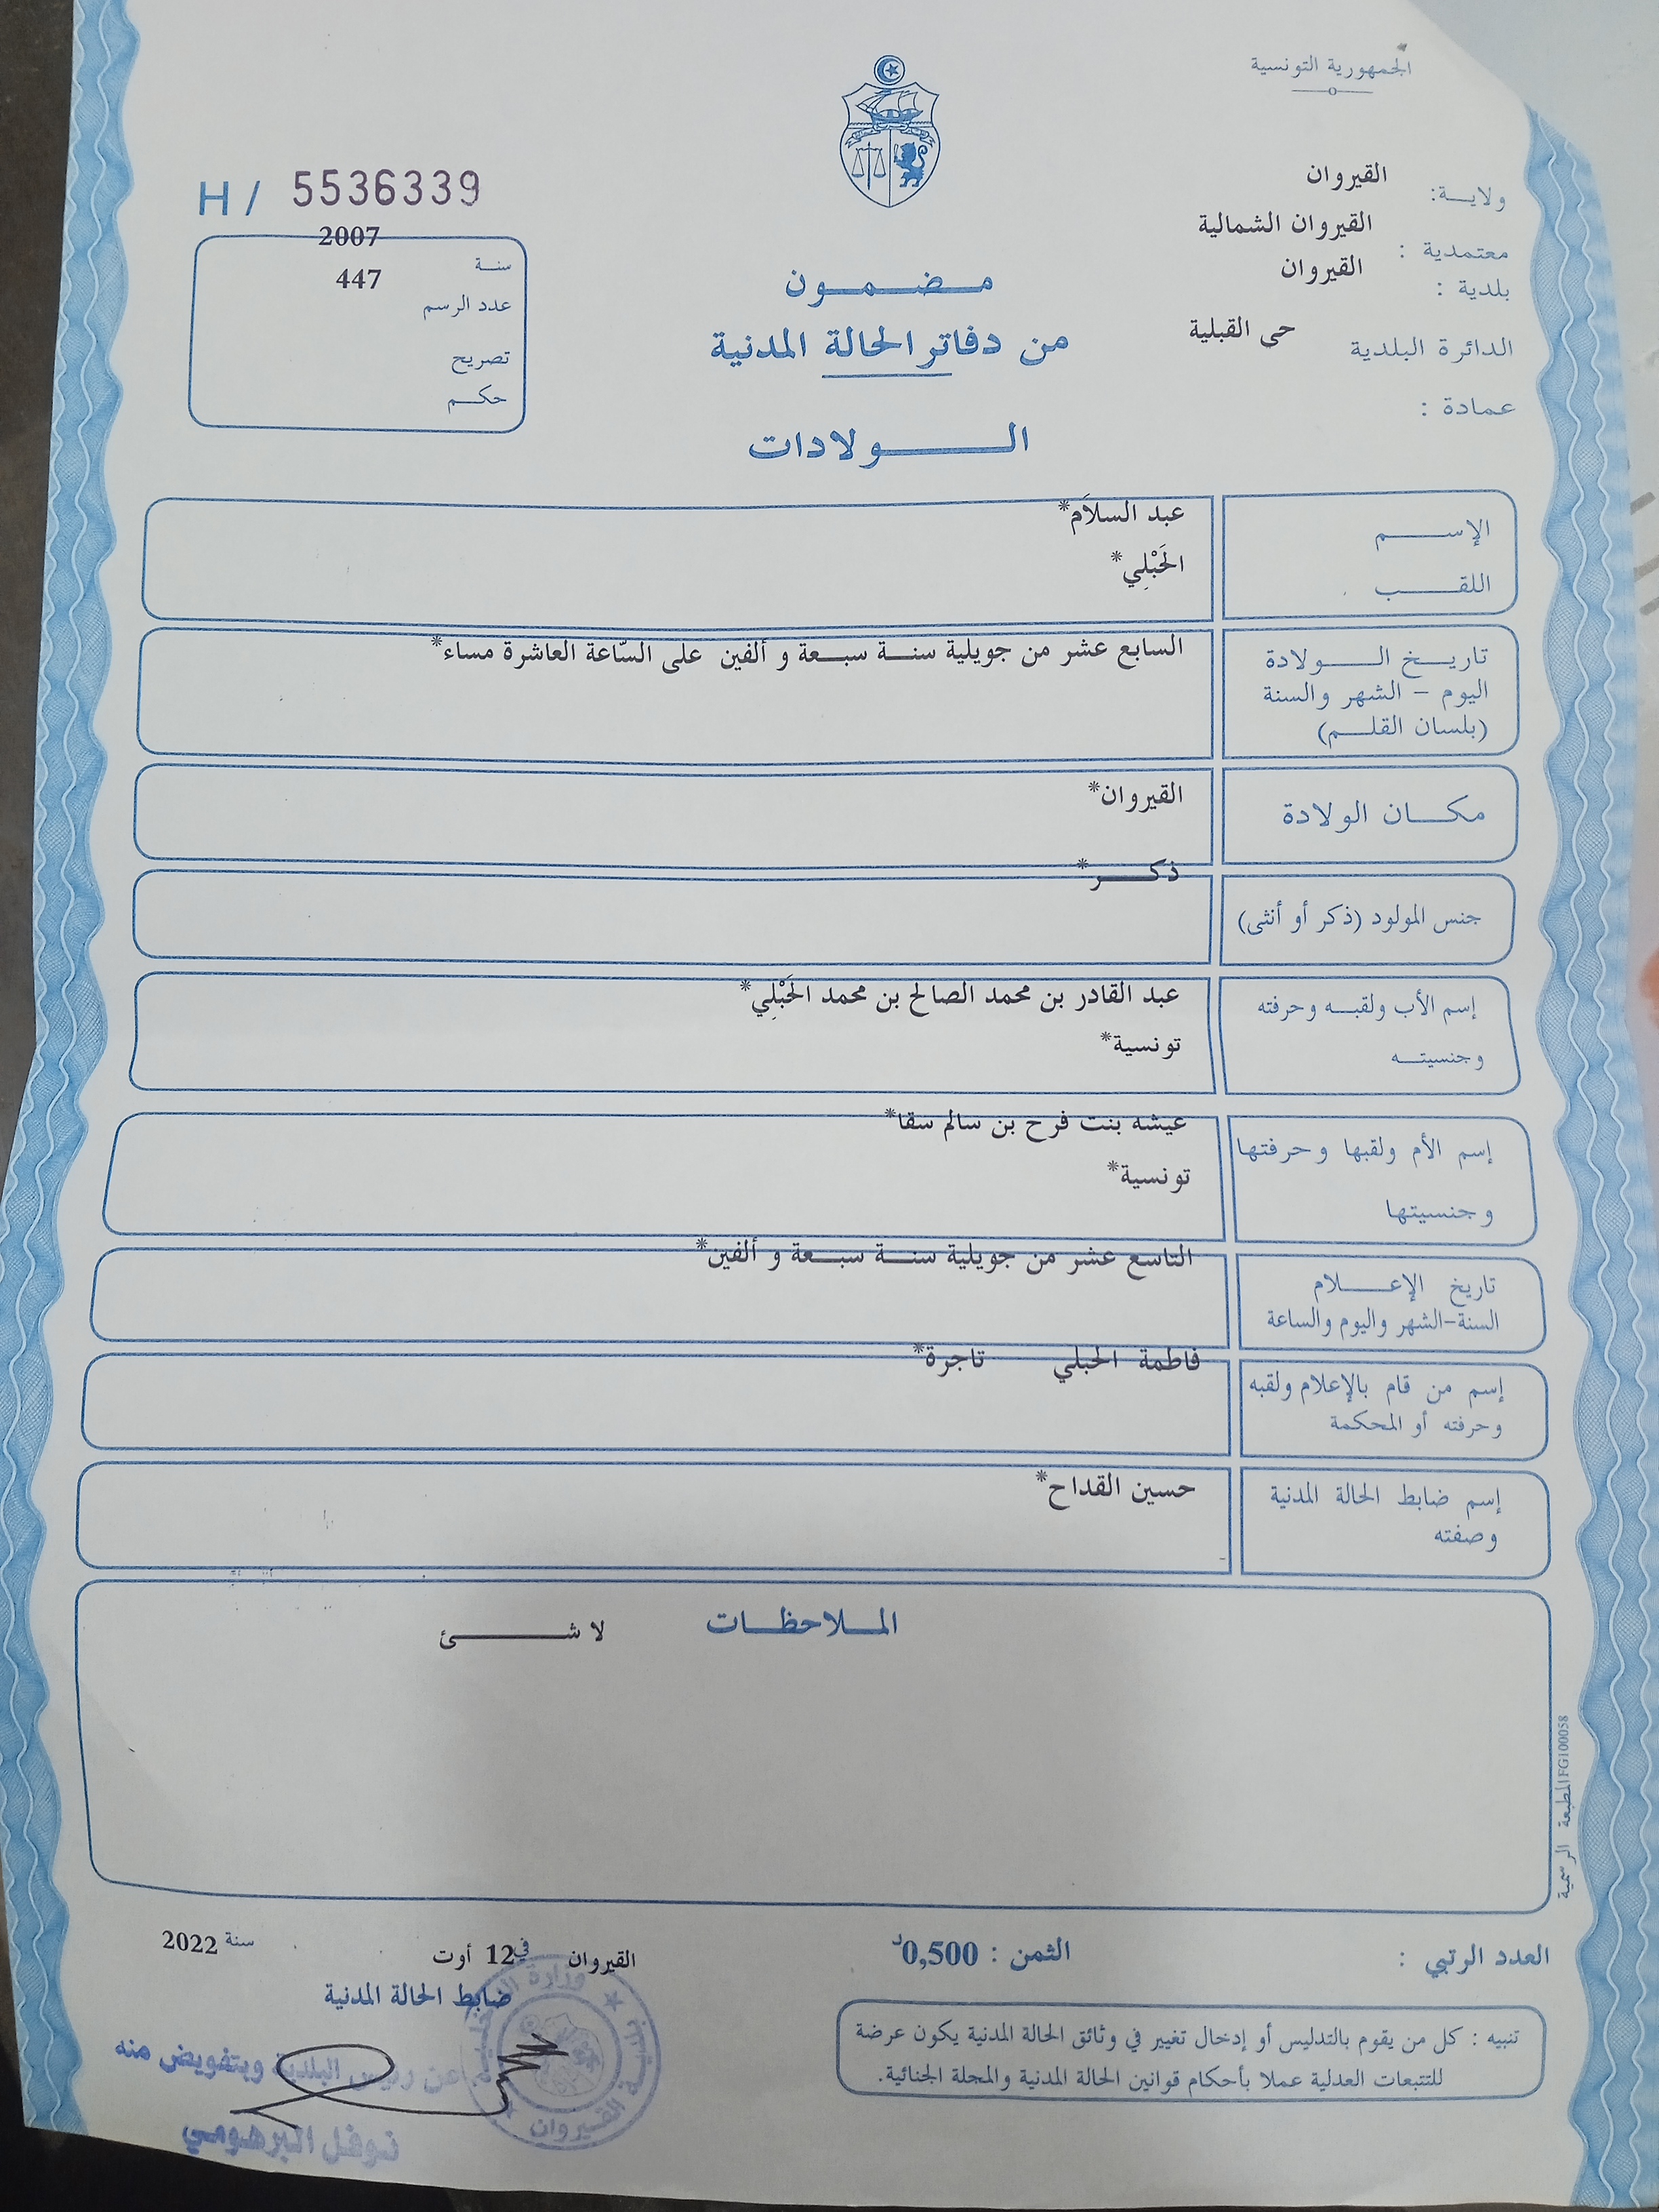 الجمهورية التونسية
ولاية: القيروان
معتمدية : القيروان الشمالية
بلدية : القيروان
الدائرة البلدية حى القبلية
عمادة :
H/ 5536339
سنة 2007
عدد الرسم 447
تصريح
حكم
مضمون
من دفاتر الحالة المدنية
الولادات
الإسم عبد السلاَم*
اللقب الحَبْلِي*
تاريخ الولادة السابع عشر من جويلية سنة سبعة و ألفين على السّاعة العاشرة مساء*
اليوم - الشهر والسنة
(بلسان القلم)
مكان الولادة القيروان*
جنس المولود (ذكر أو أنثى) ذكر*
إسم الأب ولقبه وحرفته عبد القادر بن محمد الصالح بن محمد الحَبْلِي*
وجنسيته تونسية*
إسم الأم ولقبها وحرفتها عيشه بنت فرح بن سالم سقا*
وجنسيتها تونسية*
تاريخ الإعلام التاسع عشر من جويلية سنة سبعة و ألفين*
السنة-الشهر واليوم والساعة
إسم من قام بالإعلام ولقبه فاطمة الحبلي تاجرة*
وحرفته أو المحكمة
إسم ضابط الحالة المدنية حسين القداح*
وصفته
الملاحظات لا شئ
المطبعة الرسمية FG100058
العدد الرتبي :
الثمن : 0,500د
القيروان في 12 أوت سنة 2022
ضابط الحالة المدنية
عن رئيس البلدية وبتفويض منه
نوفل البرهومي
وزارة الداخلية
القيروان
تنبيه : كل من يقوم بالتدليس أو إدخال تغيير في وثائق الحالة المدنية يكون عرضة
للتتبعات العدلية عملا بأحكام قوانين الحالة المدنية والمجلة الجنائية.